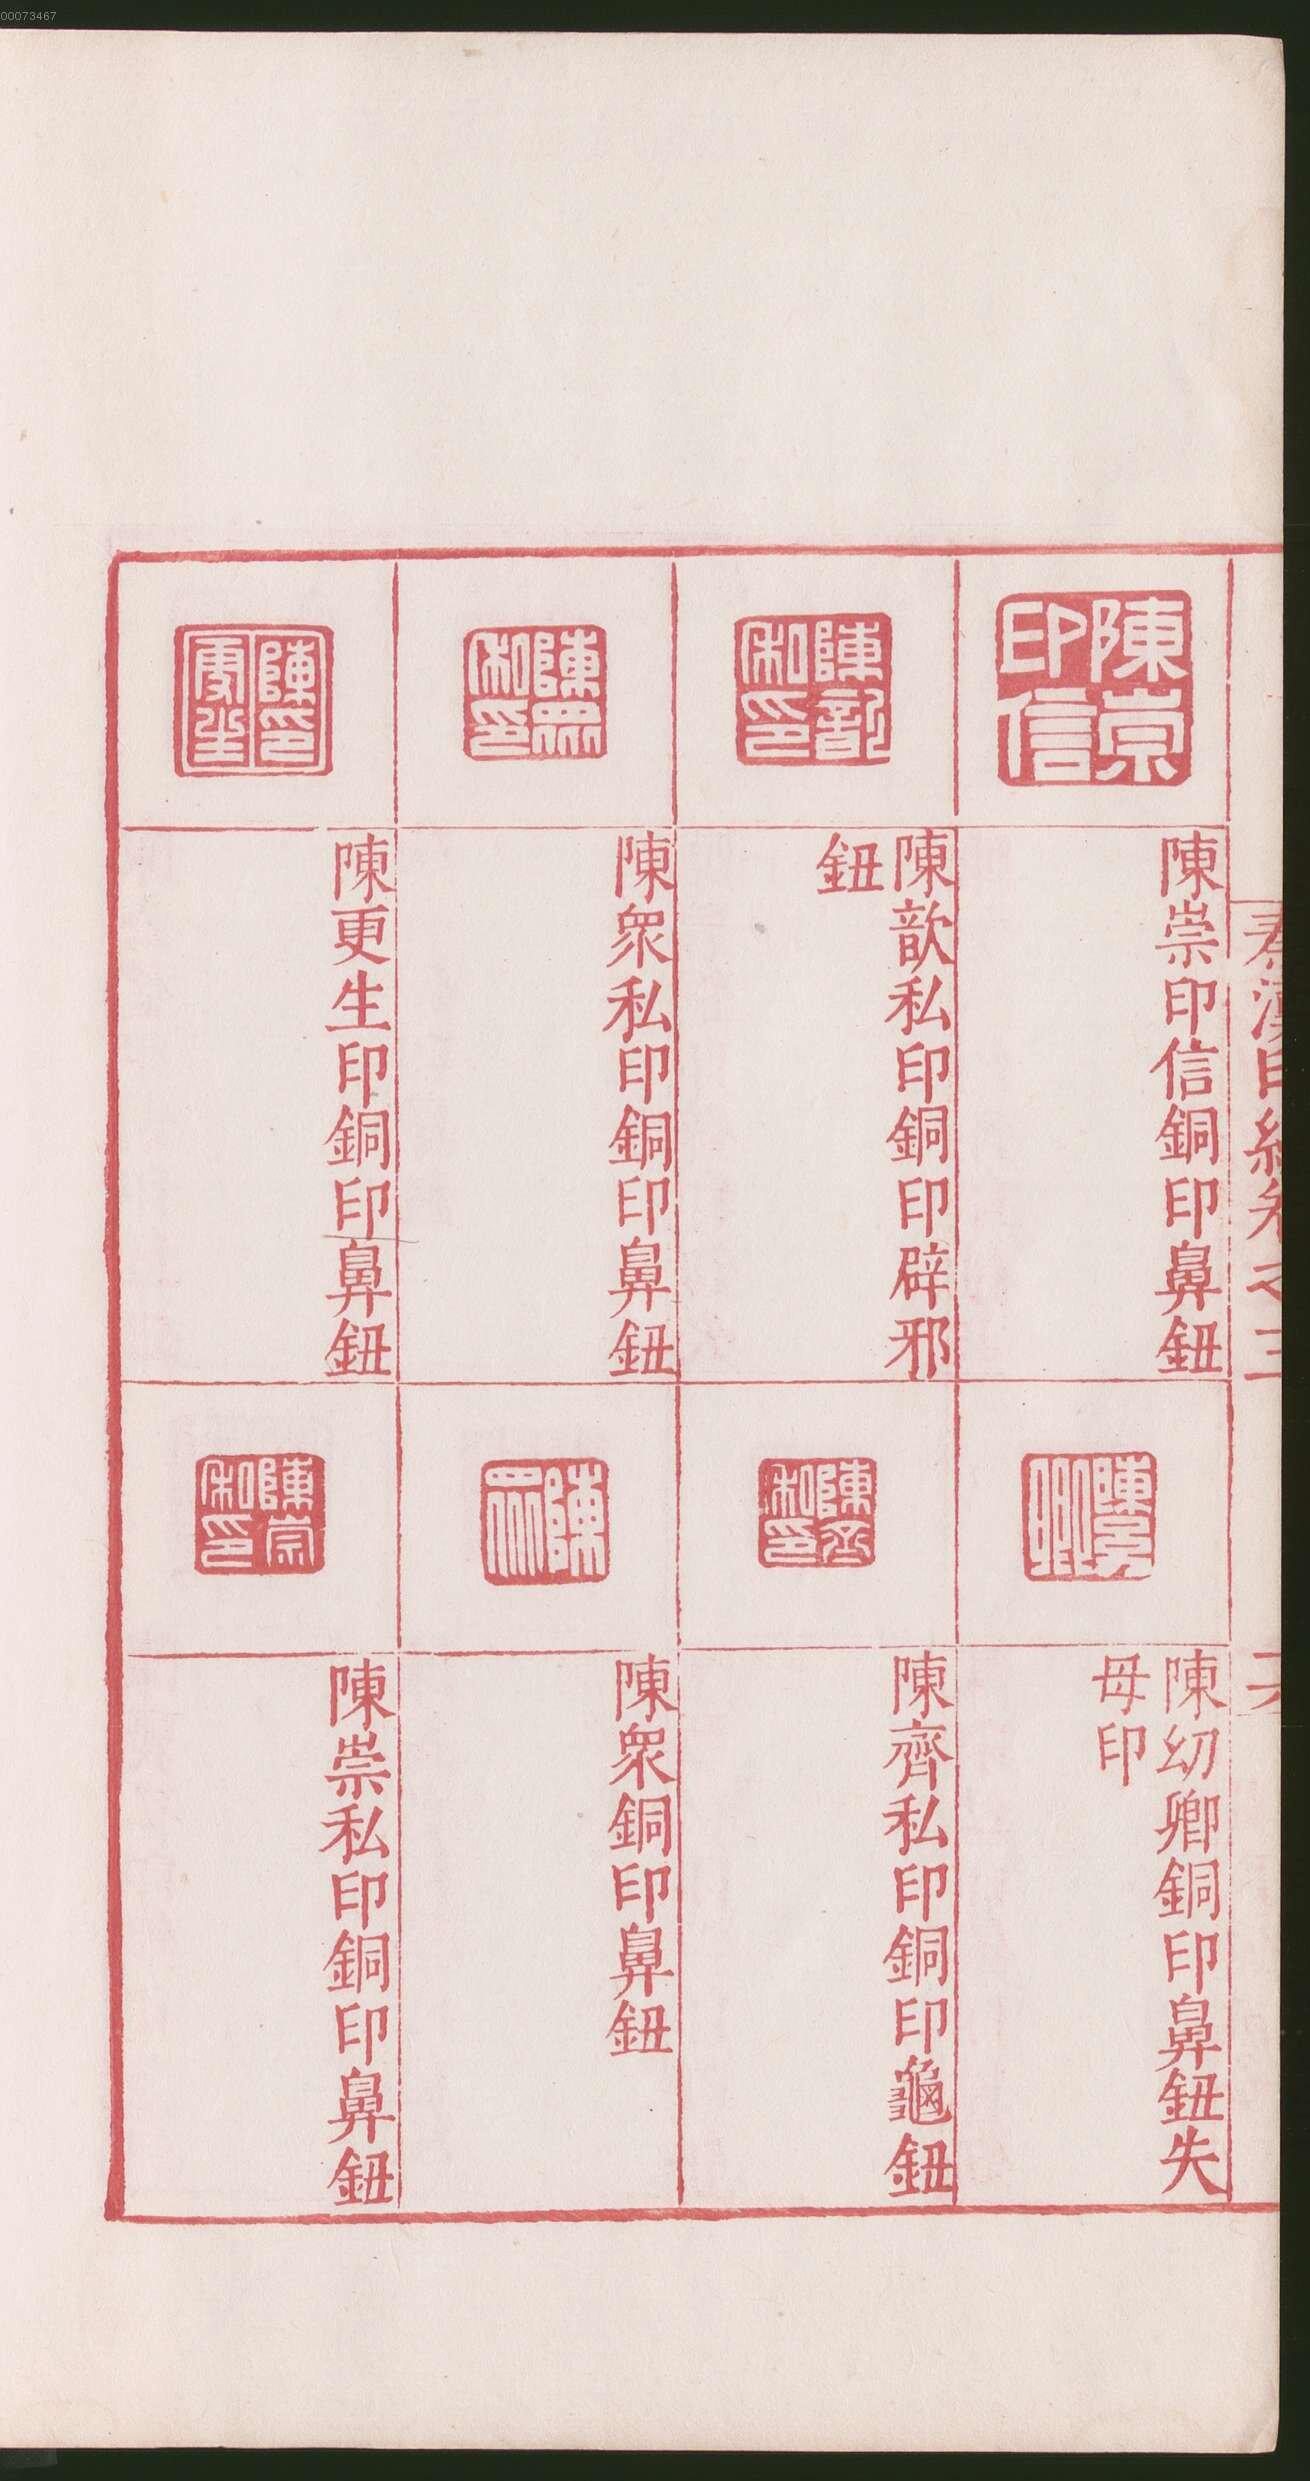 00073467
秦漢印統卷之三
六
陳崇印信
陳崇印信銅印鼻鈕
陳歆私印
陳歆私印銅印辟邪
鈕
陳眾私印
陳眾私印銅印鼻鈕
陳更生印
陳更生印銅印鼻鈕
陳幼卿
陳㓜卿銅印鼻鈕失
母印
陳齊私印
陳齊私印銅印龜鈕
陳眾
陳眾銅印鼻鈕
陳崇私印
陳崇私印銅印鼻鈕